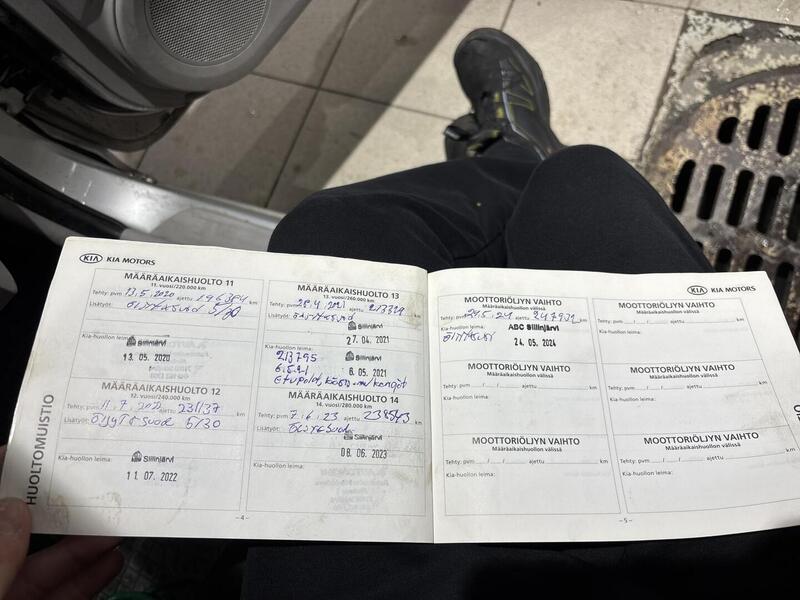 KIA MOTORS
HUOLTOMUISTIO
MÄÄRÄAIKAISHUOLTO 11
11. vuosi/220.000 km
Tehty: pvm 13.5.2020 ajettu 196384 km
Lisätyöt: 5/30
Kia-huollon leima:
Siilinjärvi
13. 05. 2020
MÄÄRÄAIKAISHUOLTO 12
12. vuosi/240.000 km
Tehty: pvm 11.7.2022 ajettu 231137 km
Lisätyöt: ÖLJYT+Suod 5/30
Kia-huollon leima:
Siilinjärvi
11. 07. 2022
MÄÄRÄAIKAISHUOLTO 13
13. vuosi/260.000 km
Tehty: pvm ajettu km
Lisätyöt:
Siilinjärvi
27. 04. 2021
213795
Siilinjärvi
6. 05. 2021
MÄÄRÄAIKAISHUOLTO 14
14. vuosi/280.000 km
Tehty: pvm 7.6.23 ajettu km
Lisätyöt:
Kia-huollon leima:
Siilinjärvi
08. 06. 2023
-4-
KIA MOTORS
MOOTTORIÖLJYN VAIHTO
Määräaikaishuollon välissä
Tehty: pvm 24.5.24 ajettu 247932 km
Kia-huollon leima:
ABC Siilinjärvi
24. 05. 2024
MOOTTORIÖLJYN VAIHTO
Määräaikaishuollon välissä
Tehty: pvm / / ajettu km
Kia-huollon leima:
MOOTTORIÖLJYN VAIHTO
Määräaikaishuollon välissä
Tehty: pvm / / ajettu km
Kia-huollon leima:
MOOTTORIÖLJYN VAIHTO
Määräaikaishuollon välissä
Tehty: pvm / / ajettu km
Kia-huollon leima:
MOOTTORIÖLJYN VAIHTO
Määräaikaishuollon välissä
Tehty: pvm / / ajettu km
Kia-huollon leima:
MOOTTORIÖLJYN VAIHTO
Määräaikaishuollon välissä
Tehty: pvm / / ajettu km
Kia-huollon leima:
-5-